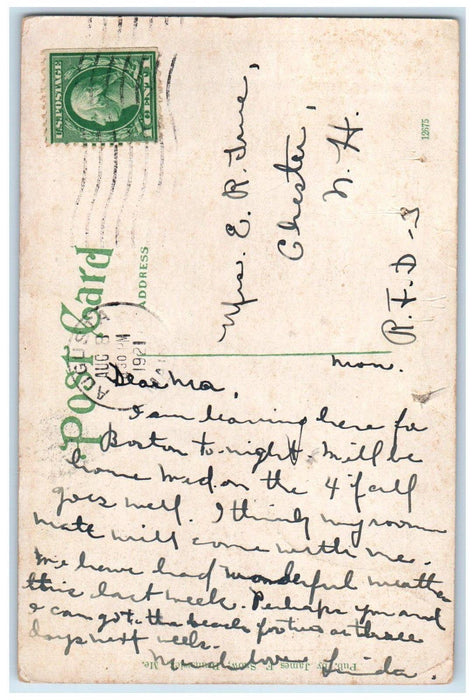 U.S. POSTAGE
1 CENT 1
AUGUSTA
AUG 8
30 PM
1921
Post Card
ADDRESS
12675
Mrs. E. R. True,
Chester,
N. H.
R.F.D-3
Mon.
Dear Ma,
I am leaving here for
Boston to-night. Will be
home Wed. on the 4 if all
goes well. I think my room
mate will come with me.
We have had wonderful weather
this last week. Perhaps you and
I can go to the beach for two or three
days next week.
Much love Linda.
Pub. by James F. Snow, Me.